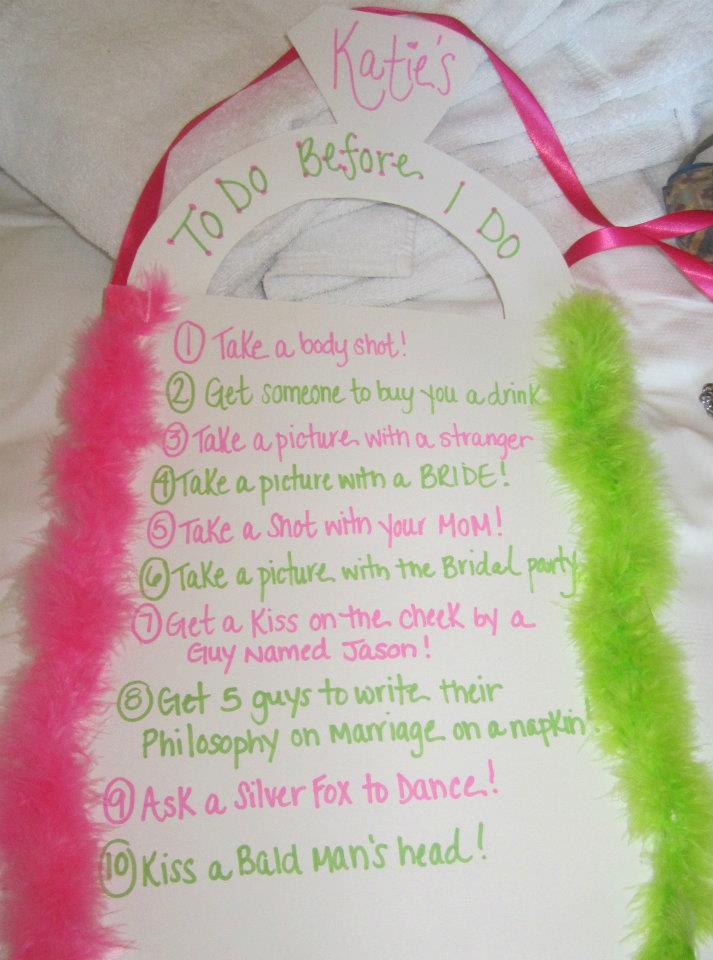 Katie's
To Do Before I Do
① Take a body shot!
② Get someone to buy you a drink
③ Take a picture with a stranger
④ Take a picture with a BRIDE!
⑤ Take a Shot with your MOM!
⑥ Take a picture with the Bridal party
⑦ Get a Kiss on the cheek by a
Guy Named Jason!
⑧ Get 5 guys to write their
Philosophy on Marriage on a napkin!
⑨ Ask a Silver Fox to Dance!
⑩ Kiss a Bald Man's head!